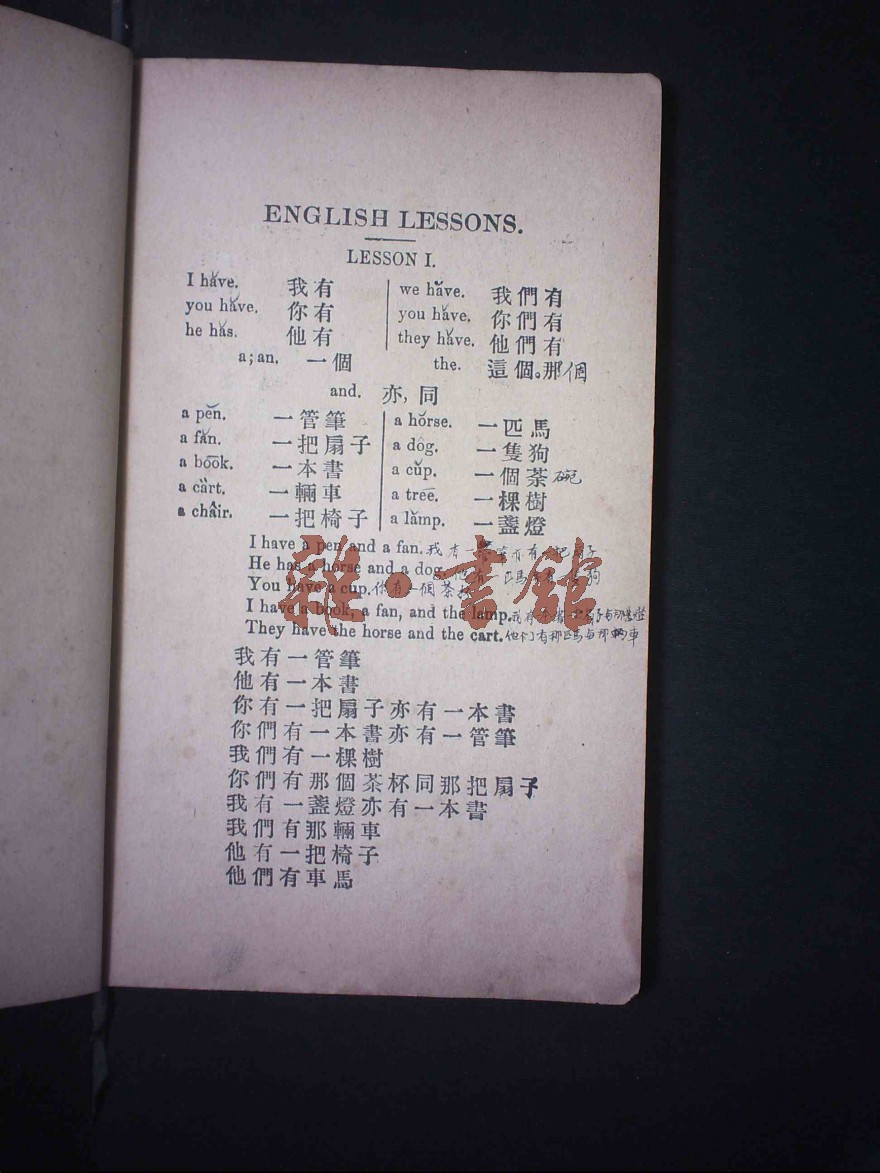 ENGLISH LESSONS.
LESSON I.
I hăve. 我有 we hăve. 我們有
you hăve. 你有 you hăve. 你們有
he hăs. 他有 they hăve. 他們有
a; an. 一個 the. 這個。那個
and. 亦, 同
a pĕn. 一管筆 a hŏrse. 一匹馬
a făn. 一把扇子 a dôg. 一隻狗
a bo͞ok. 一本書 a cŭp. 一個茶碗
a cärt. 一輛車 a trēē. 一棵樹
a châir. 一把椅子 a lămp. 一盞燈
I have a pen and a fan. 我有一管筆亦有一把扇子
He has a horse and a dog. 他有一匹馬狗
You have a cup. 你有一個茶杯
I have a book, a fan, and the lamp. 我有本書
They have the horse and the cart. 他们有那匹馬与那辆車
我有一管筆
他有一本書
你有一把扇子亦有一本書
你們有一本書亦有一管筆
我們有一棵樹
你們有那個茶杯同那把扇子
我有一盞燈亦有一本書
我們有那輛車
他有一把椅子
他們有車馬
雜·書館